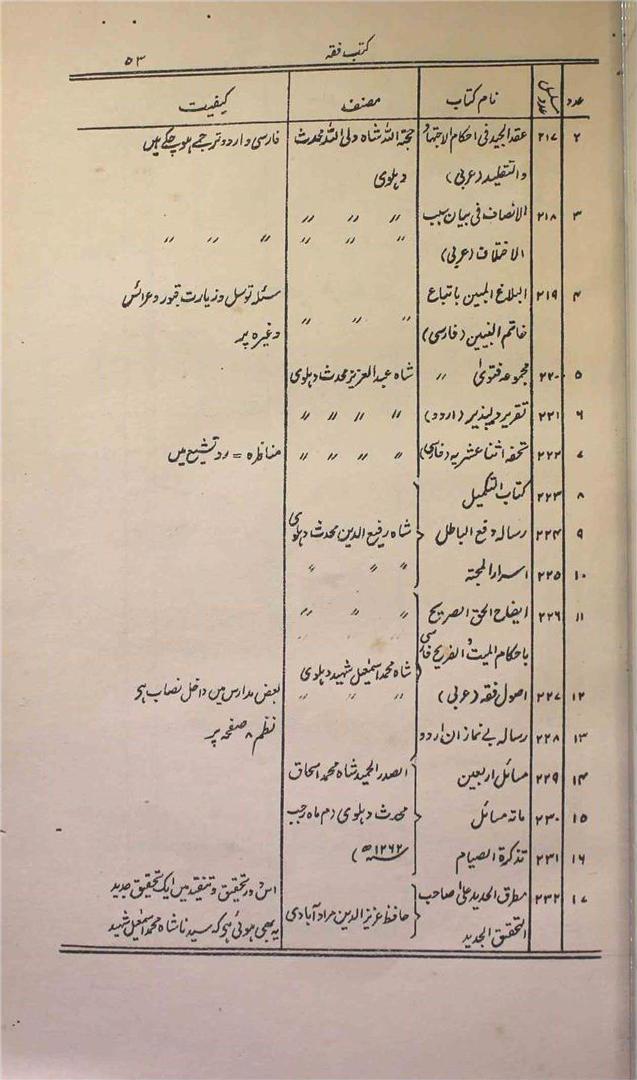 کتب فقہ ۵۳
عدد مسلسل عدد نام کتاب مصنف کیفیت
۲ ۲۱۷ عقد الجید فی احکام الاجتہاد حجۃ اللہ شاہ ولی اللہ محدث فارسی و اردو ترجمے ہوچکے ہیں
والتقلید (عربی) دہلوی
۳ ۲۱۸ الانصاف فی بیان سبب 〃 〃 〃
الاختلاف (عربی) 〃 〃 〃 〃 〃 〃
۴ ۲۱۹ البلاغ المبین باتباع مسئلہ توسل و زیارت قبور و عرائس
خاتم النبیین (فارسی) 〃 〃 〃 وغیرہ پر
۵ ۲۲۰ مجموعہ فتویٰ 〃 شاہ عبدالعزیز محدث دہلوی
۶ ۲۲۱ تقریر دلپذیر (اردو) 〃 〃 〃 〃
۷ ۲۲۲ تحفہ اثنا عشریہ (فارسی) 〃 〃 〃 〃 مناظرہ = رد تشیع میں
۸ ۲۲۳ کتاب التکمیل
۹ ۲۲۴ رسالہ دفع الباطل شاہ رفیع الدین محدث دہلوی
۱۰ ۲۲۵ اسرار المحبتہ 〃 〃 〃
۱۱ ۲۲۶ ایضاح الحق الصریح 〃 〃 〃
باحکام المیت و الضریح فارسی
شاہ محمد اسمٰعیل شہید دہلوی
۱۲ ۲۲۷ اصول فقہ (عربی) 〃 〃 〃 بعض مدارس میں داخل نصاب ہو
۱۳ ۲۲۸ رسالہ بے نمازان اردو نظم ۸ صفحہ پر
۱۴ ۲۲۹ مسائل اربعین الصدر الحمید شاہ محمد اسحاق
۱۵ ۲۳۰ ماتہ مسائل محدث دہلوی (م ماہ رجب
۱۶ ۲۳۱ تذکرۃ الصیام ۱۲۶۲ھ)
۱۷ ۲۳۲ مطرق الحدید علیٰ صاحب حافظ عزیز الدین مراد آبادی تحقیق و تنقید میں ایک تحقیق جدید
التحقیق الجدید یہ بھی ہوئی ہو کہ سیدنا شاہ محمد اسمٰعیل شہید